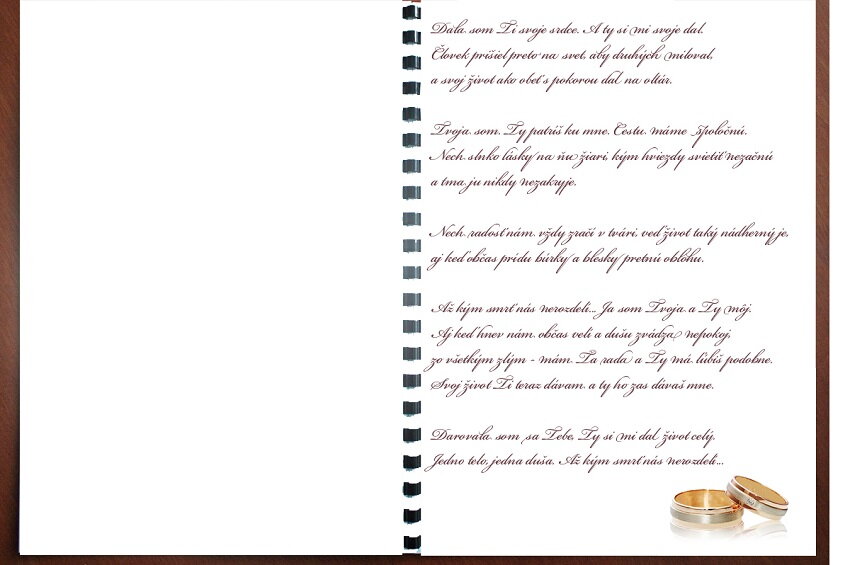 Dala som Ti svoje srdce. A ty si mi svoje dal.
Človek prišiel preto na svet, aby druhých miloval,
a svoj život ako obeť s pokorou dal na oltár.
Tvoja som. Ty patríš ku mne. Cestu máme spoločnú.
Nech slnko lásky na ňu žiari, kým hviezdy svietiť nezačnú
a tma ju nikdy nezakryje.
Nech radosť nám vždy zračí v tvári, veď život taký nádherný je,
aj keď občas prídu búrky a blesky pretnú oblohu.
Až kým smrť nás nerozdelí... Ja som Tvoja a Ty môj.
Aj keď hnev nám občas velí a dušu zvádza nepokoj,
zo všetkým zlým - mám Ťa rada a Ty ma ľúbiš podobne.
Svoj život Ti teraz dávam a ty ho zas dávaš mne.
Darovala som sa Tebe, Ty si mi dal život celý.
Jedno telo, jedna duša. Až kým smrť nás nerozdelí...